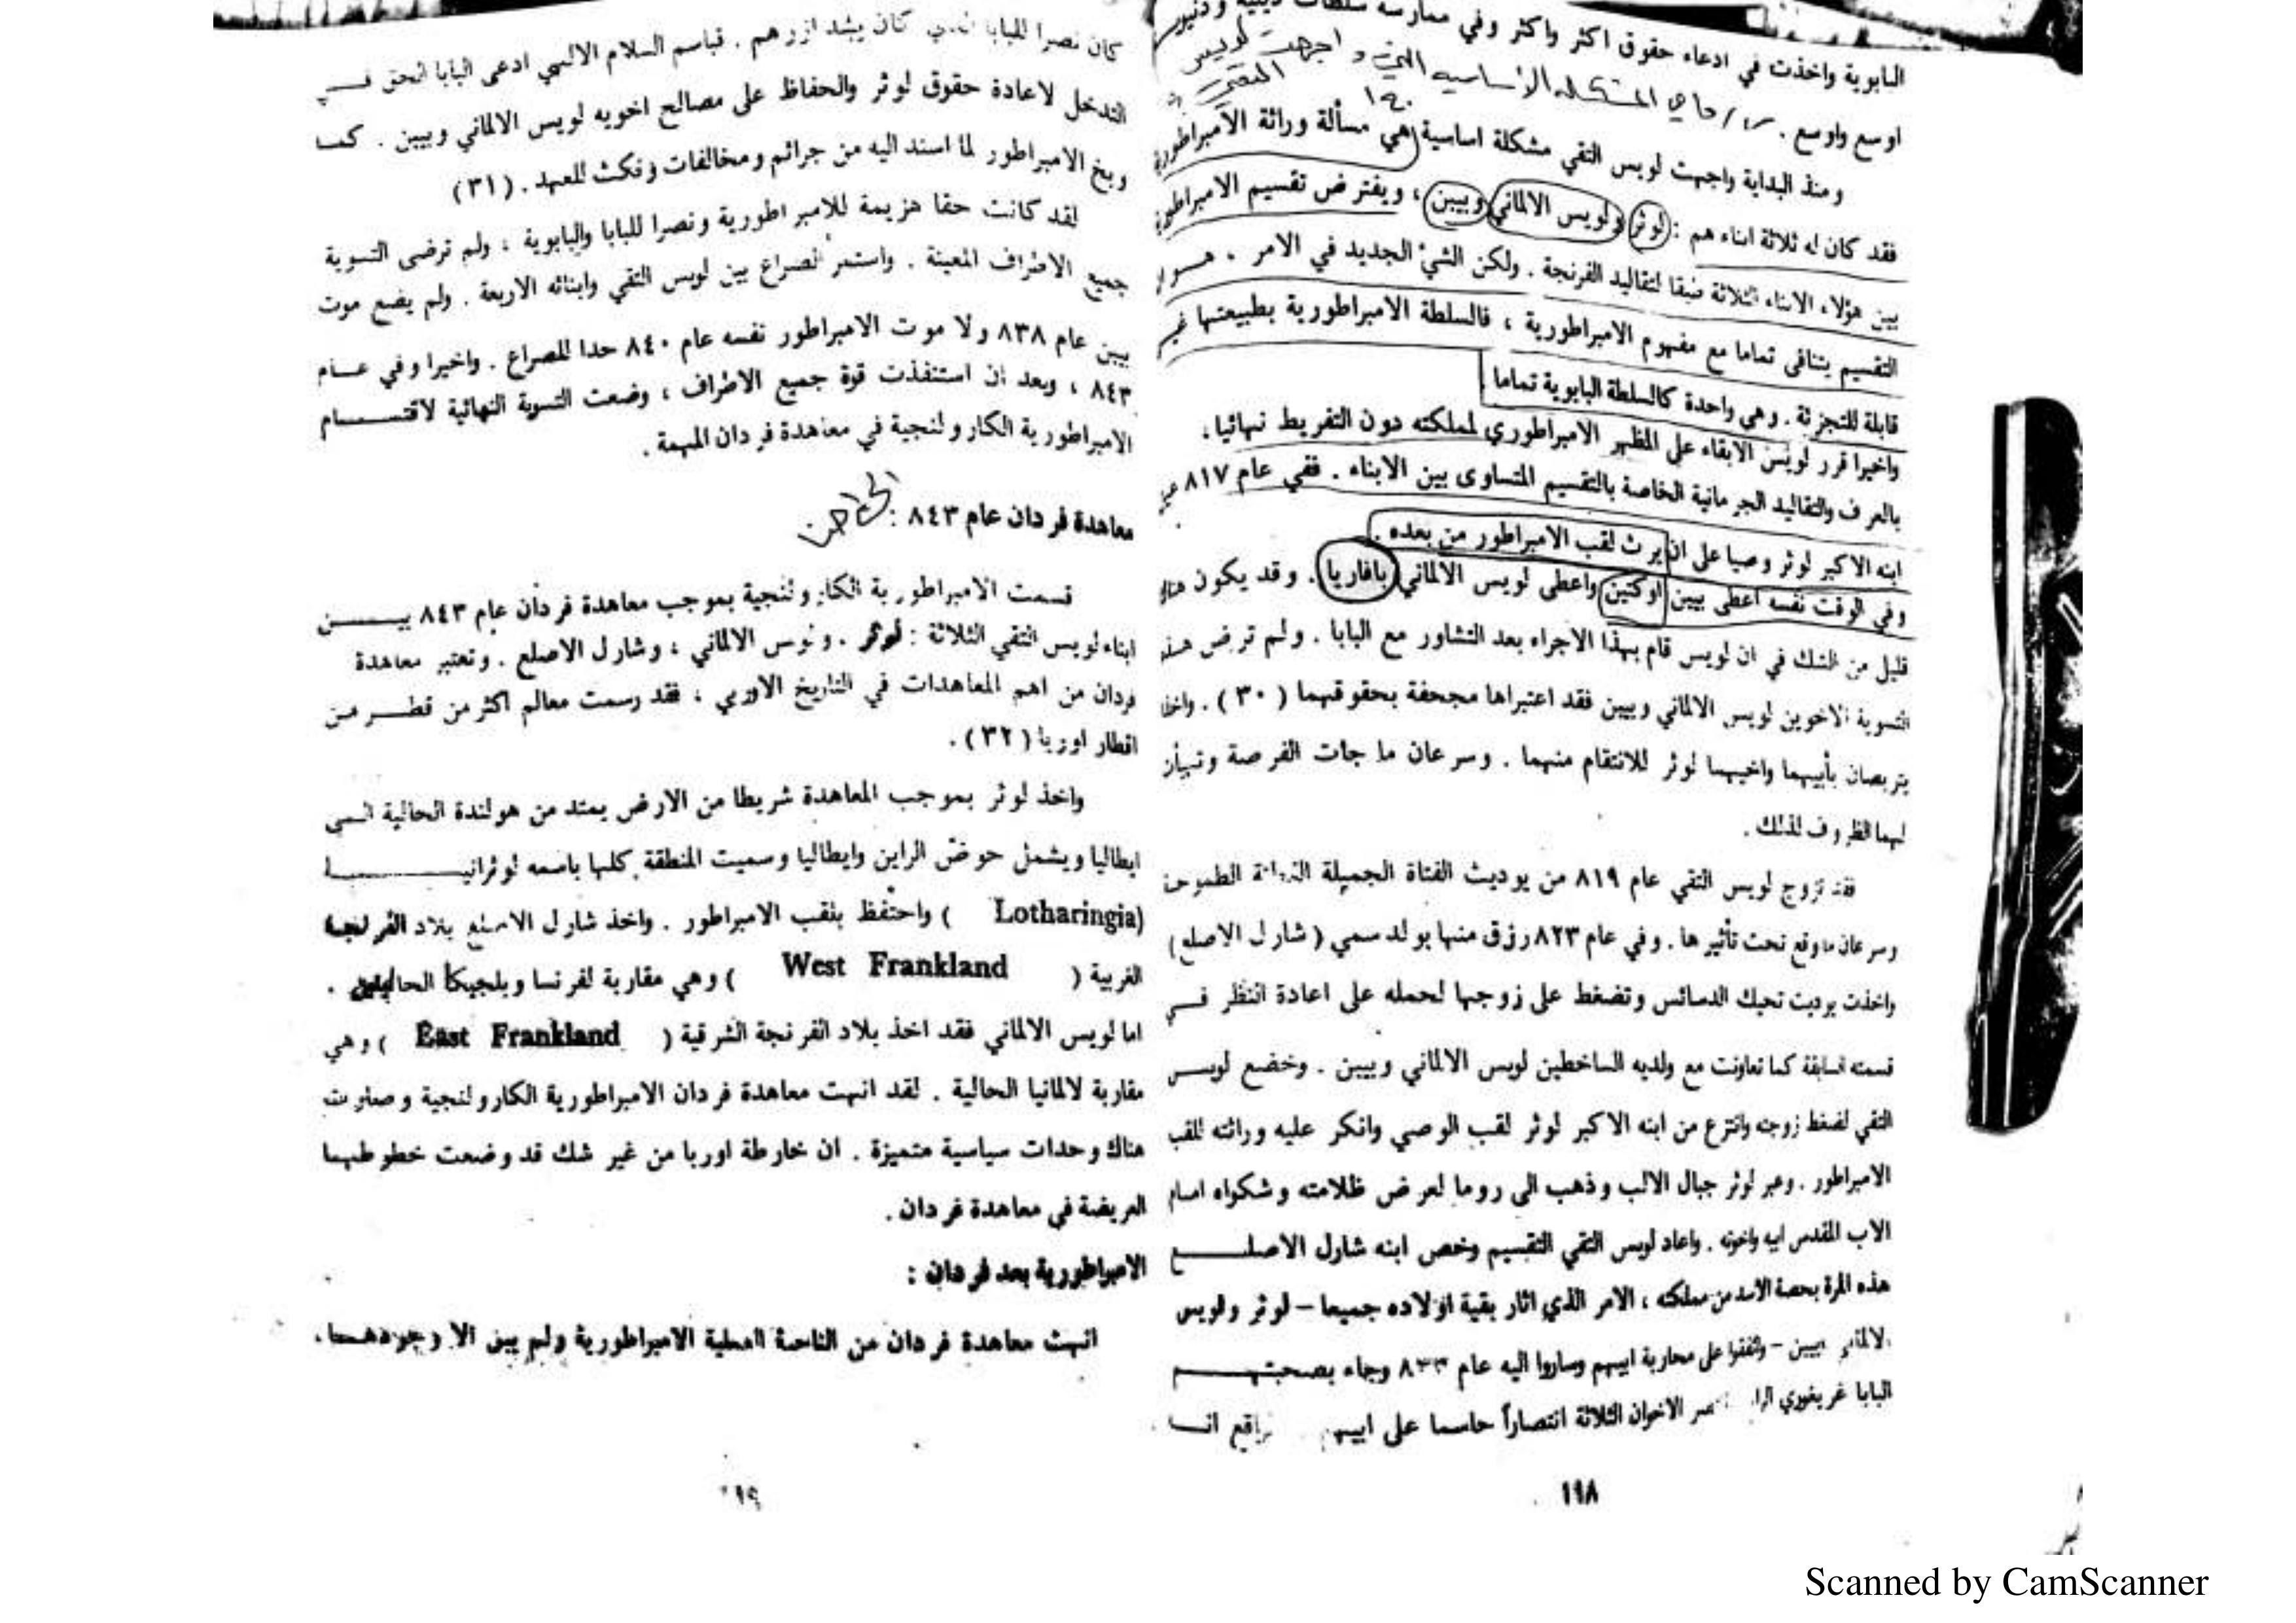 البابوية واخذت في ادعاء حقوق اكثر واكثر وفي ممارسة سلطات دينية ودنيوية
اوسع واوسع . س / ماهي المشكله الأساسيه التي واجهت لويس التقي
ومنذ البداية واجهت لويس التقي مشكلة اساسية هي مسألة وراثة الامبراطورية
فقد كان له ثلاثة ابناء هم : لوثر ولويس الالماني وبيبن ، ويفترض تقسيم الامبراطورية
بين هؤلاء الابناء الثلاثة طبقا لتقاليد الفرنجة . ولكن الشيء الجديد في الامر . هـو ا
التقسيم يتنافى تماما مع مفهوم الامبراطورية ، فالسلطة الامبراطورية بطبيعتها غير
قابلة للتجزئة . وهي واحدة كالسلطة البابوية تماما
واخيرا قرر لويس الابقاء على المظهر الامبراطوري لمملكته دون التفريط نهائيا ،
بالعرف والتقاليد الجرمانية الخاصة بالتقسيم المتساوى بين الابناء . ففي عام ٨١٧ عين
ابنه الاكبر لوثر وصيا على ان يرث لقب الامبراطور من بعده .
وفي الوقت نفسه اعطى بيبن اوكتين واعطى لويس الالماني بافاريا . وقد يكون هناك
قليل من الشك في ان لويس قام بهذا الاجراء بعد التشاور مع البابا . ولم ترض هذه
التسوية الاخوين لويس الالماني وبيبن فقد اعتبراها مجحفة بحقوقهما ( ٣٠ ) . واخذا
يتربصان بأبيهما واخيهما لوثر للانتقام منهما . وسرعان ما جات الفرصة وتهيأت
لهما الظروف لذلك .
فقد تزوج لويس التقي عام ٨١٩ من يوديث الفتاة الجميلة الطموحة
وسرعان ما وقع تحت تأثيرها . وفي عام ٨٢٣ رزق منها بولد سمي ( شارل الاصلع )
واخذت يوديت تحيك الدسائس وتضغط على زوجها لحمله على اعادة النظر فـي
قسمته السابقة كما تعاونت مع ولديه الساخطين لويس الالماني وبيبن . وخضع لويـس
التقي لضغط زوجته وانتزع من ابنه الاكبر لوثر لقب الوصي وانكر عليه وراثته للقب
الامبراطور . وعبر لوثر جبال الالب وذهب الى روما لعرض ظلامته وشكواه امام
الاب المقدس ابيه واخوته . واعاد لويس التقي التقسيم وخص ابنه شارل الاصلـع
هذه المرة بحصة الاسد من مملكته ، الامر الذي اثار بقية اولاده جميعا – لوثر ولويس
الالماني بيبن – واتفقوا على محاربة ابيهم وساروا اليه عام ٨٣٣ وجاء بصحبتهـم
البابا غريغوري الاخوان الثلاثة انتصاراً حاسما على ابيهم
١٩٨
كان نصرا للبابا الذي كان يشد ازرهم . فباسم السلام الالهي ادعى البابا الحق فـي
التدخل لاعادة حقوق لوثر والحفاظ على مصالح اخويه لويس الالماني وبيبن . كمـا
وبخ الامبراطور لما اسند اليه من جرائم ومخالفات ونكث للعهد . (٣١)
لقد كانت حقا هزيمة للامبراطورية ونصرا للبابا والبابوية ، ولم ترضى التسوية
جميع الاطراف المعينة . واستمر الصراع بين لويس التقي وابنائه الاربعة . ولم يضع موت
بيبن عام ٨٣٨ ولا موت الامبراطور نفسه عام ٨٤٠ حدا للصراع . واخيرا وفي عـام
٨٤٣ ، وبعد ان استنفذت قوة جميع الاطراف ، وضعت التسوية النهائية لاقتسـام
الامبراطورية الكارولنجية في معاهدة فردان المهمة .
معاهدة فردان عام ٨٤٣ :
قسمت الامبراطورية الكارولنجية بموجب معاهدة فردان عام ٨٤٣ بيـن
ابناء لويس التقي الثلاثة : لوثر . ولويس الالماني ، وشارل الاصلع . وتعتبر معاهدة
فردان من اهم المعاهدات في التاريخ الاوربي ، فقد رسمت معالم اكثر من قطـر مـن
اقطار اوربا ( ٣٢ ) .
واخذ لوثر بموجب المعاهدة شريطا من الارض يمتد من هولندة الحالية الـى
ايطاليا ويشمل حوض الراين وايطاليا وسميت المنطقة كلها باسمه لوثرانيـا
(Lotharingia ) واحتفظ بلقب الامبراطور . واخذ شارل الاصلع بلاد الفرنجة
الغربية ( West Frankland ) وهي مقاربة لفرنسا وبلجيكا الحاليتين .
اما لويس الالماني فقد اخذ بلاد الفرنجة الشرقية ( East Frankland ) وهي
مقاربة لالمانيا الحالية . لقد انهت معاهدة فردان الامبراطورية الكارولنجية وصيرت
هناك وحدات سياسية متميزة . ان خارطة اوربا من غير شك قد وضعت خطوطهـا
العريضة في معاهدة فردان .
الامبراطورية بعد فردان :
انهت معاهدة فردان من الناحية العملية الامبراطورية ولم يبق الا وجودهـا ،
Scanned by CamScanner